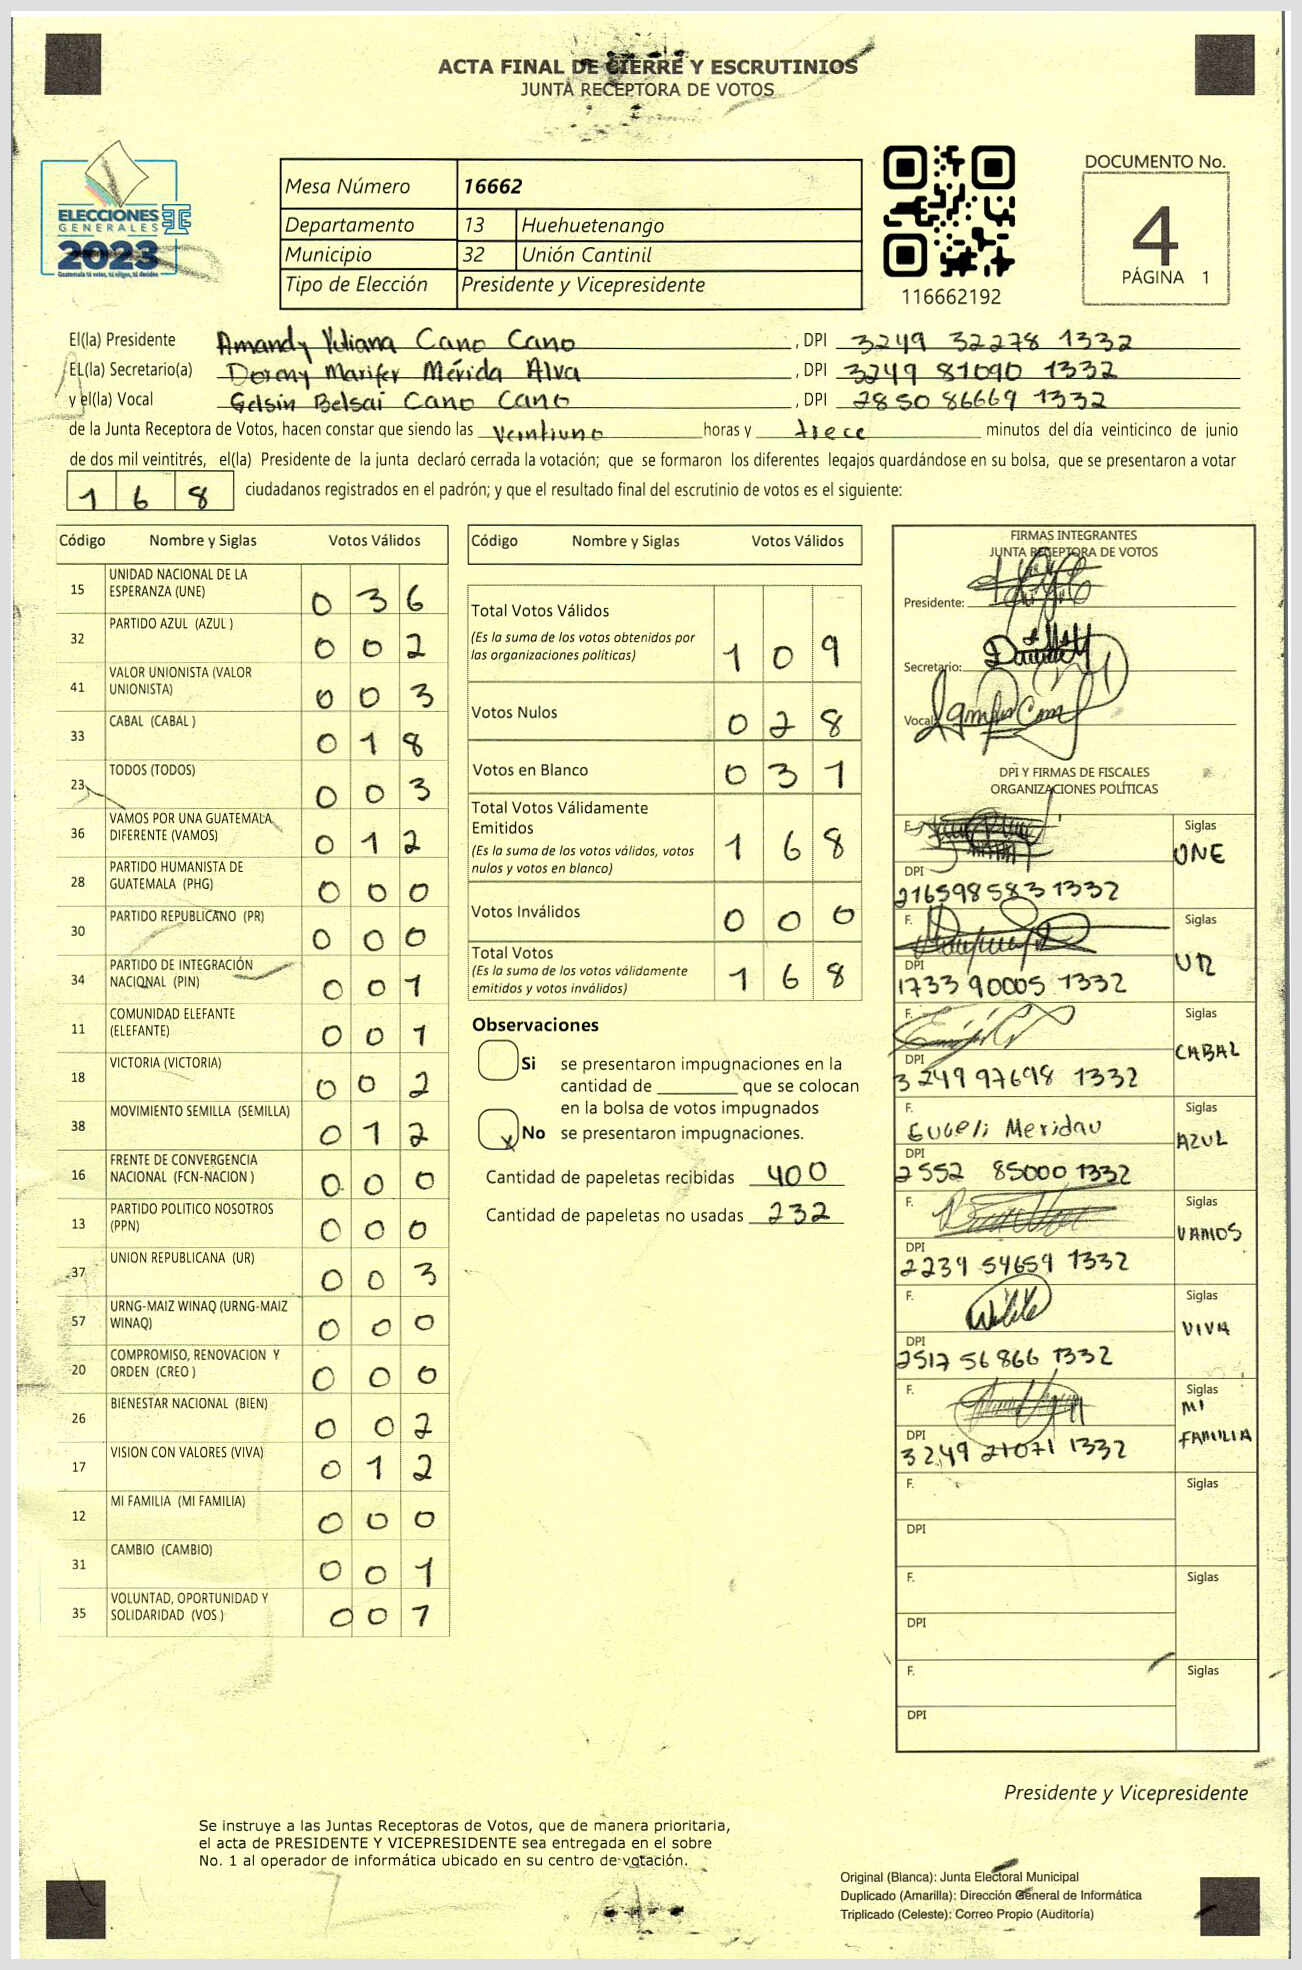 ACTA FINAL DE CIERRE Y ESCRUTINIOS
JUNTA RECEPTORA DE VOTOS
ELECCIONES
GENERALES
2023
Guatemala tú votas, tú eliges, tú decides
Mesa Número 16662
Departamento 13 Huehuetenango
Municipio 32 Unión Cantinil
Tipo de Elección Presidente y Vicepresidente
116662192
DOCUMENTO No.
4
PÁGINA 1
El(la) Presidente Amandy Yuliana Cano Cano , DPI 3249 32278 1332
EL(la) Secretario(a) Marifer Mérida Alva , DPI 3249 81090 1332
y el(la) Vocal Gelsin Belsai Cano Cano , DPI 2850 86669 1332
de la Junta Receptora de Votos, hacen constar que siendo las veintiuno horas y trece minutos del día veinticinco de junio
de dos mil veintitrés, el(la) Presidente de la junta declaró cerrada la votación; que se formaron los diferentes legajos quardándose en su bolsa, que se presentaron a votar
1 6 8 ciudadanos registrados en el padrón; y que el resultado final del escrutinio de votos es el siguiente:
Código Nombre y Siglas Votos Válidos
15 UNIDAD NACIONAL DE LA
ESPERANZA (UNE) 0 3 6
32 PARTIDO AZUL (AZUL ) 0 0 2
41 VALOR UNIONISTA (VALOR
UNIONISTA) 0 0 3
33 CABAL (CABAL ) 0 1 8
23 TODOS (TODOS) 0 0 3
36 VAMOS POR UNA GUATEMALA
DIFERENTE (VAMOS) 0 1 2
28 PARTIDO HUMANISTA DE
GUATEMALA (PHG) 0 0 0
30 PARTIDO REPUBLICANO (PR) 0 0 0
34 PARTIDO DE INTEGRACIÓN
NACIONAL (PIN) 0 0 1
11 COMUNIDAD ELEFANTE
(ELEFANTE) 0 0 1
18 VICTORIA (VICTORIA) 0 0 2
38 MOVIMIENTO SEMILLA (SEMILLA) 0 1 2
16 FRENTE DE CONVERGENCIA
NACIONAL (FCN-NACION ) 0 0 0
13 PARTIDO POLITICO NOSOTROS
(PPN) 0 0 0
37 UNION REPUBLICANA (UR) 0 0 3
57 URNG-MAIZ WINAQ (URNG-MAIZ
WINAQ) 0 0 0
20 COMPROMISO, RENOVACION Y
ORDEN (CREO ) 0 0 0
26 BIENESTAR NACIONAL (BIEN) 0 0 2
17 VISION CON VALORES (VIVA) 0 1 2
12 MI FAMILIA (MI FAMILIA) 0 0 0
31 CAMBIO (CAMBIO) 0 0 1
35 VOLUNTAD, OPORTUNIDAD Y
SOLIDARIDAD (VOS ) 0 0 1
Código Nombre y Siglas Votos Válidos
Total Votos Válidos
(Es la suma de los votos obtenidos por
las organizaciones políticas) 1 0 9
Votos Nulos 0 2 8
Votos en Blanco 0 3 1
Total Votos Válidamente
Emitidos
(Es la suma de los votos válidos, votos
nulos y votos en blanco) 1 6 8
Votos Inválidos 0 0 0
Total Votos
(Es la suma de los votos válidamente
emitidos y votos inválidos) 1 6 8
Observaciones
Si se presentaron impugnaciones en la
cantidad de ________ que se colocan
en la bolsa de votos impugnados
x No se presentaron impugnaciones.
Cantidad de papeletas recibidas 400
Cantidad de papeletas no usadas 232
FIRMAS INTEGRANTES
JUNTA RECEPTORA DE VOTOS
Presidente:
Secretario:
Vocal:
DPI Y FIRMAS DE FISCALES
ORGANIZACIONES POLÍTICAS
F. Siglas
UNE
DPI
21659 8583 1332
F. Siglas
UR
DPI
1733 90005 1332
F. Siglas
CABAL
DPI
3249 97698 1332
F. Siglas
AZUL
DPI
2552 85000 1332
F. Siglas
VAMOS
DPI
2239 54659 1332
F. Siglas
VIVA
DPI
2517 56866 1332
F. Siglas
MI
FAMILIA
DPI
3249 21071 1332
F. Siglas
DPI
F. Siglas
DPI
F. Siglas
DPI
Presidente y Vicepresidente
Se instruye a las Juntas Receptoras de Votos, que de manera prioritaria,
el acta de PRESIDENTE Y VICEPRESIDENTE sea entregada en el sobre
No. 1 al operador de informática ubicado en su centro de votación.
Original (Blanca): Junta Electoral Municipal
Duplicado (Amarilla): Dirección General de Informática
Triplicado (Celeste): Correo Propio (Auditoría)